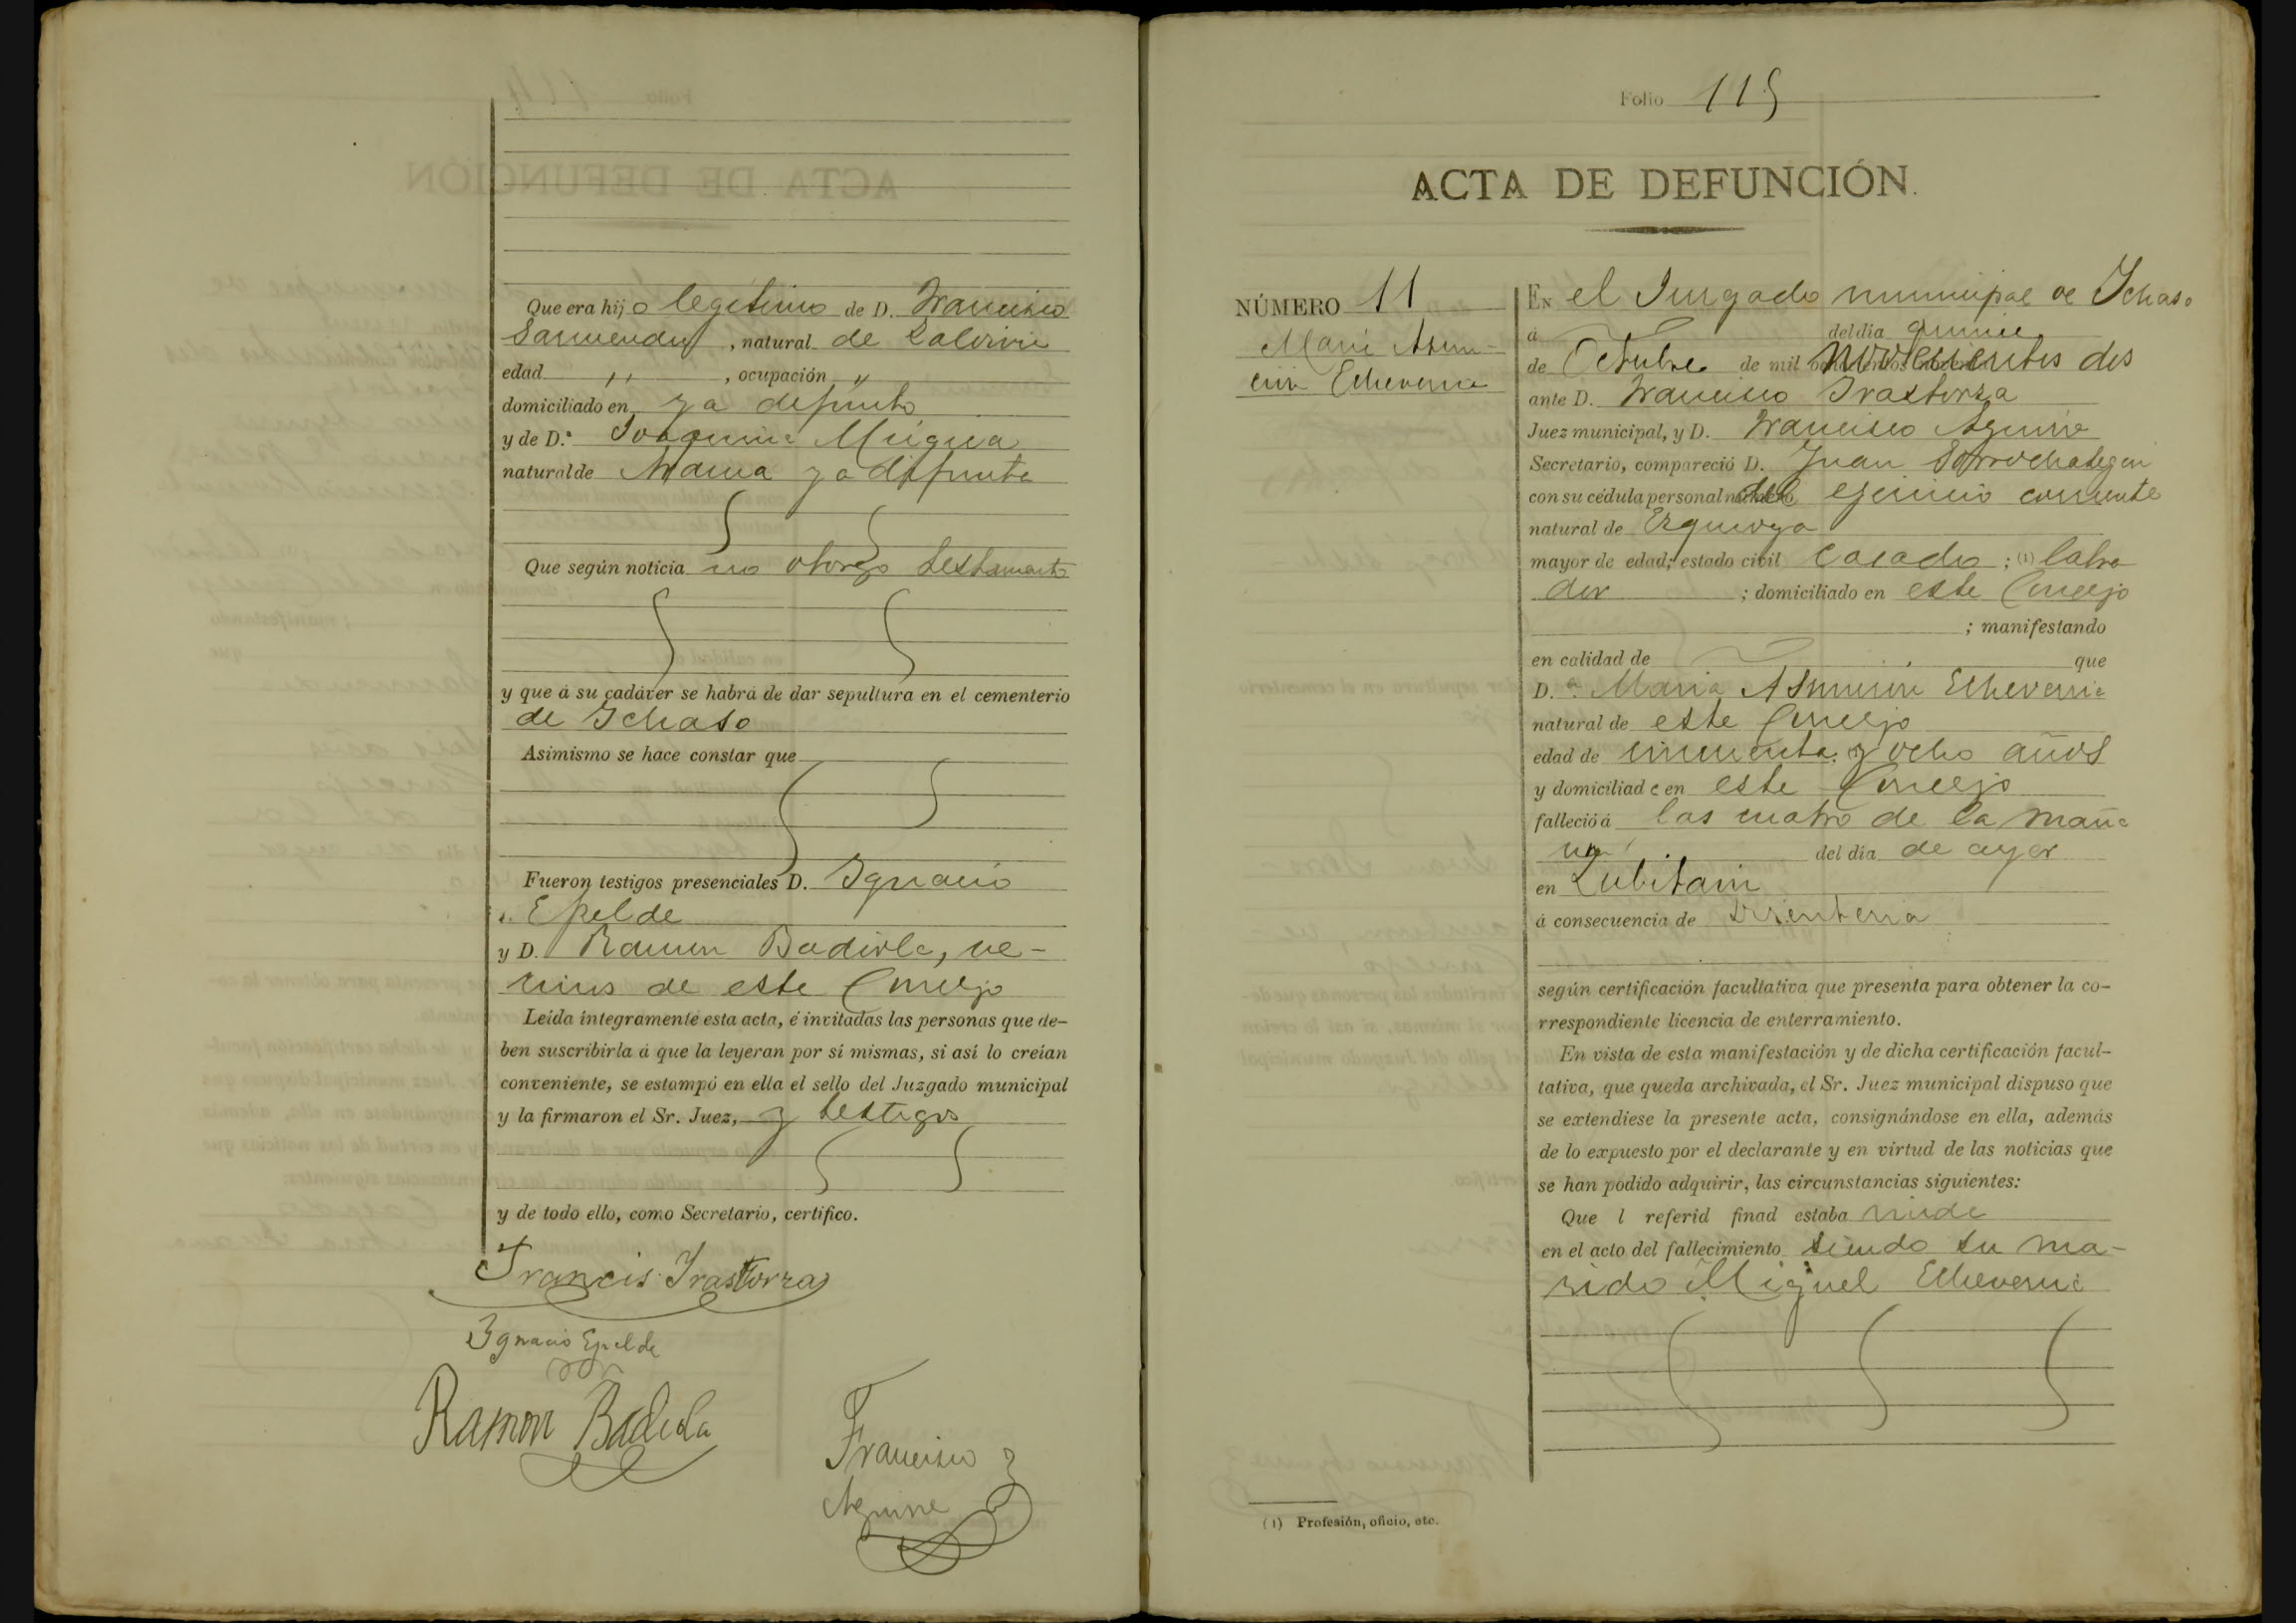 Que era hijo legitimo de D. Francisco
Sarmendi, natural de Zaldivia
edad ,, , ocupación ,,
domiciliado en ya difunto
y de D.ª Joaquina Mugica
natural de Arama ya difunta
Que según noticia no otorgó testamento
y que á su cadáver se habrá de dar sepultura en el cementerio
de Ichaso
Asimismo se hace constar que
Fueron testigos presenciales D. Ignacio
Epelde
y D. Ramon Badiola, ve-
cinos de este Concejo
Leída íntegramente esta acta, é invitadas las personas que de-
ben suscribirla á que la leyeran por sí mismas, si así lo creían
conveniente, se estampó en ella el sello del Juzgado municipal
y la firmaron el Sr. Juez, y testigos
y de todo ello, como Secretario, certifico.
Francis Irastorza
Ignacio Epelde
Ramon Badiola
Francisco
Aguirre
Folio 115
ACTA DE DEFUNCIÓN.
NÚMERO 11
María Asun-
ción Echeverria
EN el Jurgado municipal de Ichaso
á del día quince
de Octubre de mil novecientos dos
ante D. Francisco Irastorza
Juez municipal, y D. Francisco Aguirre
Secretario, compareció D. Juan Sorrochategui
con su cédula personal del ejercicio corriente
natural de Ezquioga
mayor de edad; estado civil casado ; (1) labra
dor ; domiciliado en este Concejo
; manifestando
en calidad de que
D.ª Maria Asunción Echeverria
natural de este Concejo
edad de cincuenta y ocho años
y domiciliada en este Concejo
falleció á las cuatro de la maña
na del día de ayer
en Zubitain
á consecuencia de Disenteria
según certificación facultativa que presenta para obtener la co-
rrespondiente licencia de enterramiento.
En vista de esta manifestación y de dicha certificación facul-
tativa, que queda archivada, el Sr. Juez municipal dispuso que
se extendiese la presente acta, consignándose en ella, además
de lo expuesto por el declarante y en virtud de las noticias que
se han podido adquirir, las circunstancias siguientes:
Que l referid finad estaba viuda
en el acto del fallecimiento siendo su ma-
rido Miguel Echeverria
(1) Profesión, oficio, etc.